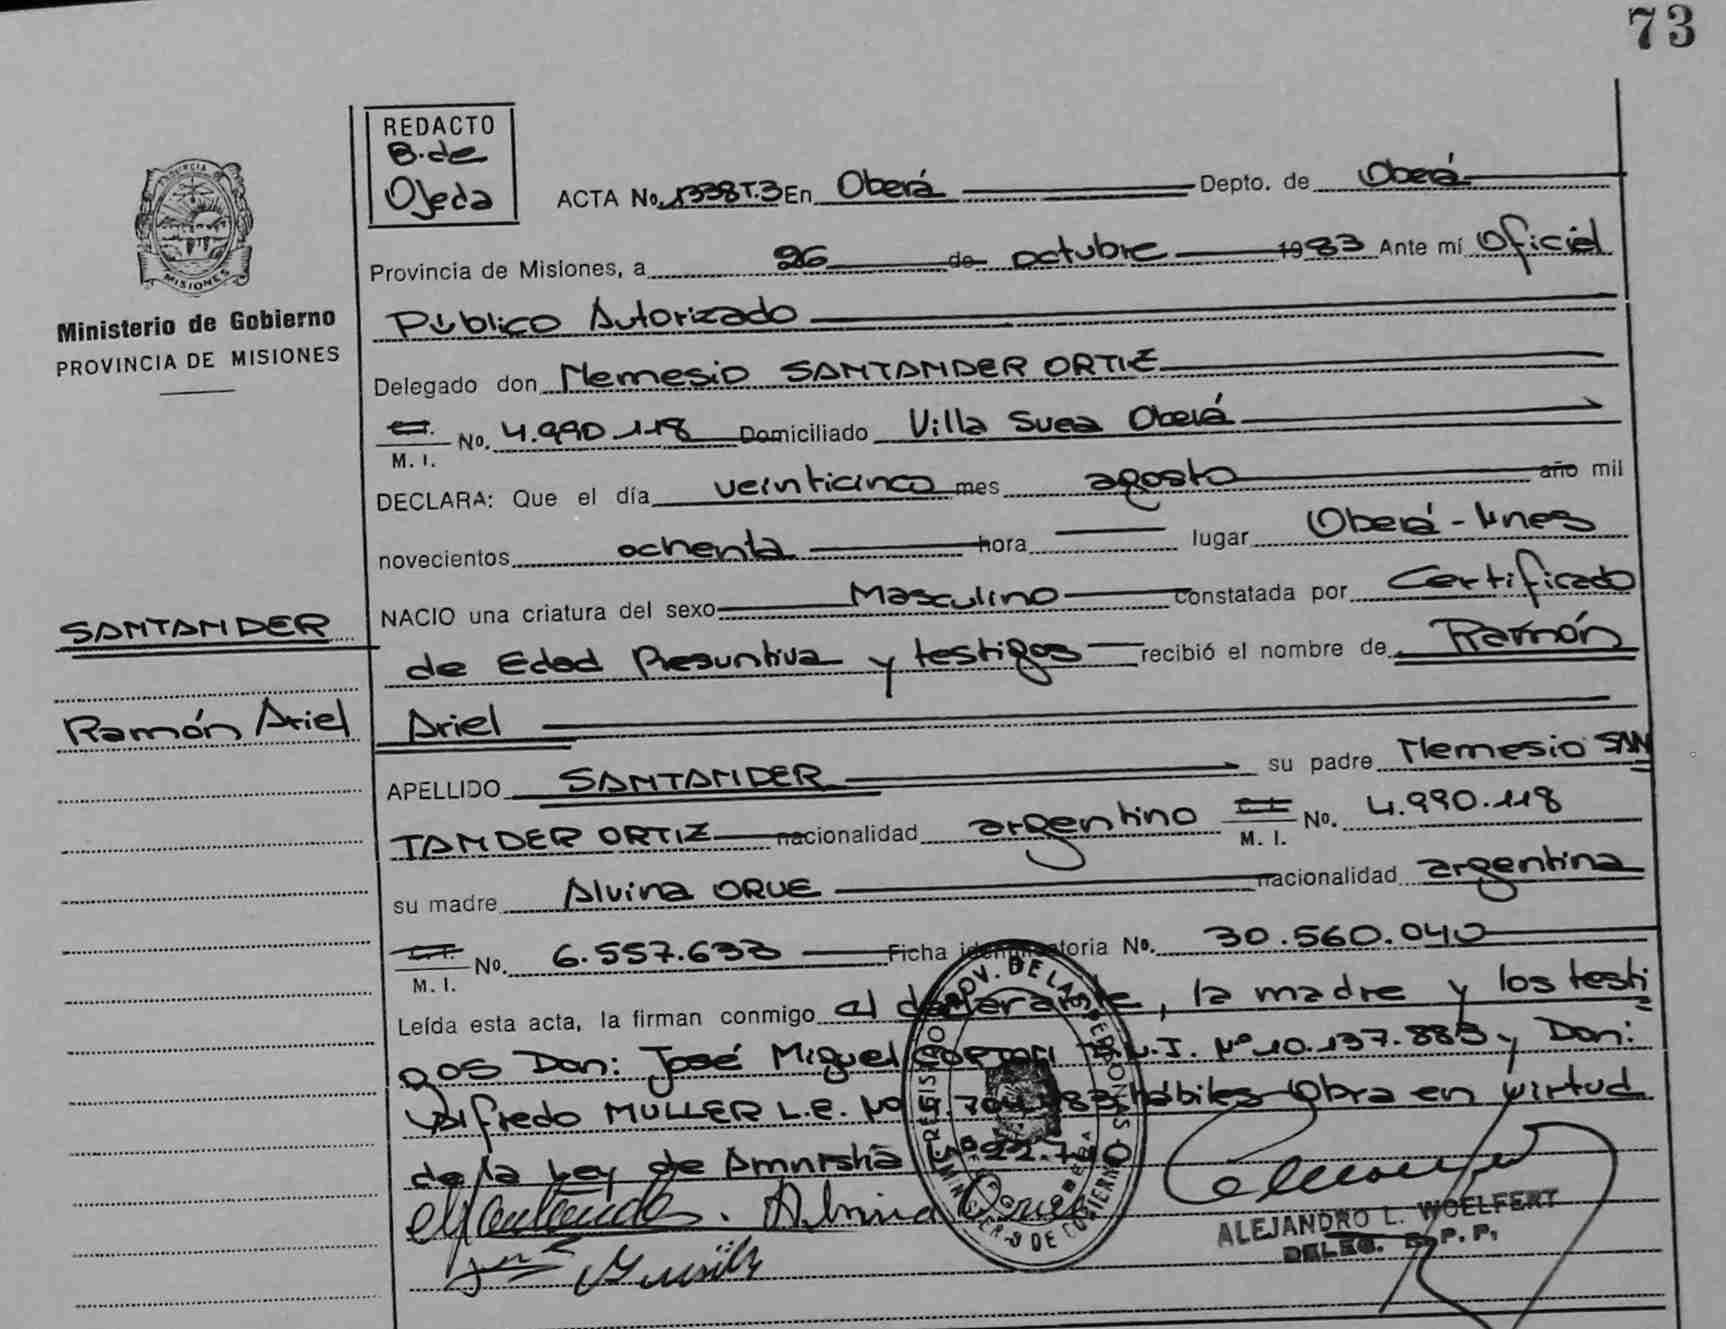 73
REDACTO
B. de
Ojeda
ACTA No. 1338T.3 En Oberá Depto. de Oberá
Provincia de Misiones, a 26 de octubre 1983 Ante mí Oficial
Público Autorizado
Ministerio de Gobierno
PROVINCIA DE MISIONES
Delegado don Nemesio SANTANDER ORTIZ
C.I. M. I. No. 4.990.118 Domiciliado Villa Svea Oberá
DECLARA: Que el día veinticinco mes agosto año mil
novecientos ochenta hora lugar Oberá - Mnes
NACIO una criatura del sexo Masculino constatada por Certificado
SANTANDER
de Edad Presuntiva y testigos recibió el nombre de Ramón
Ramón Ariel
Ariel
APELLIDO SANTANDER su padre Nemesio SAN
TANDER ORTIZ nacionalidad argentino C.I. M. I. No. 4.990.118
su madre Alvina ORUE nacionalidad argentina
C.I. M. I. No. 6.557.633 Ficha identificatoria No. 30.560.040
Leída esta acta, la firman conmigo el declarante, la madre y los testi
gos Don: José Miguel D.N.I. Nº 10.137.883 y Don:
Valfredo MULLER L.E. Nº hábiles Obra en virtud
de la Ley de Amnistía Nº 22.710
Alvina Orue
ALEJANDRO L. WOELFERT
DELEG. R.P.P.
REGISTRO PROV. DE LAS PERSONAS
MINISTERIO DE GOBIERNO